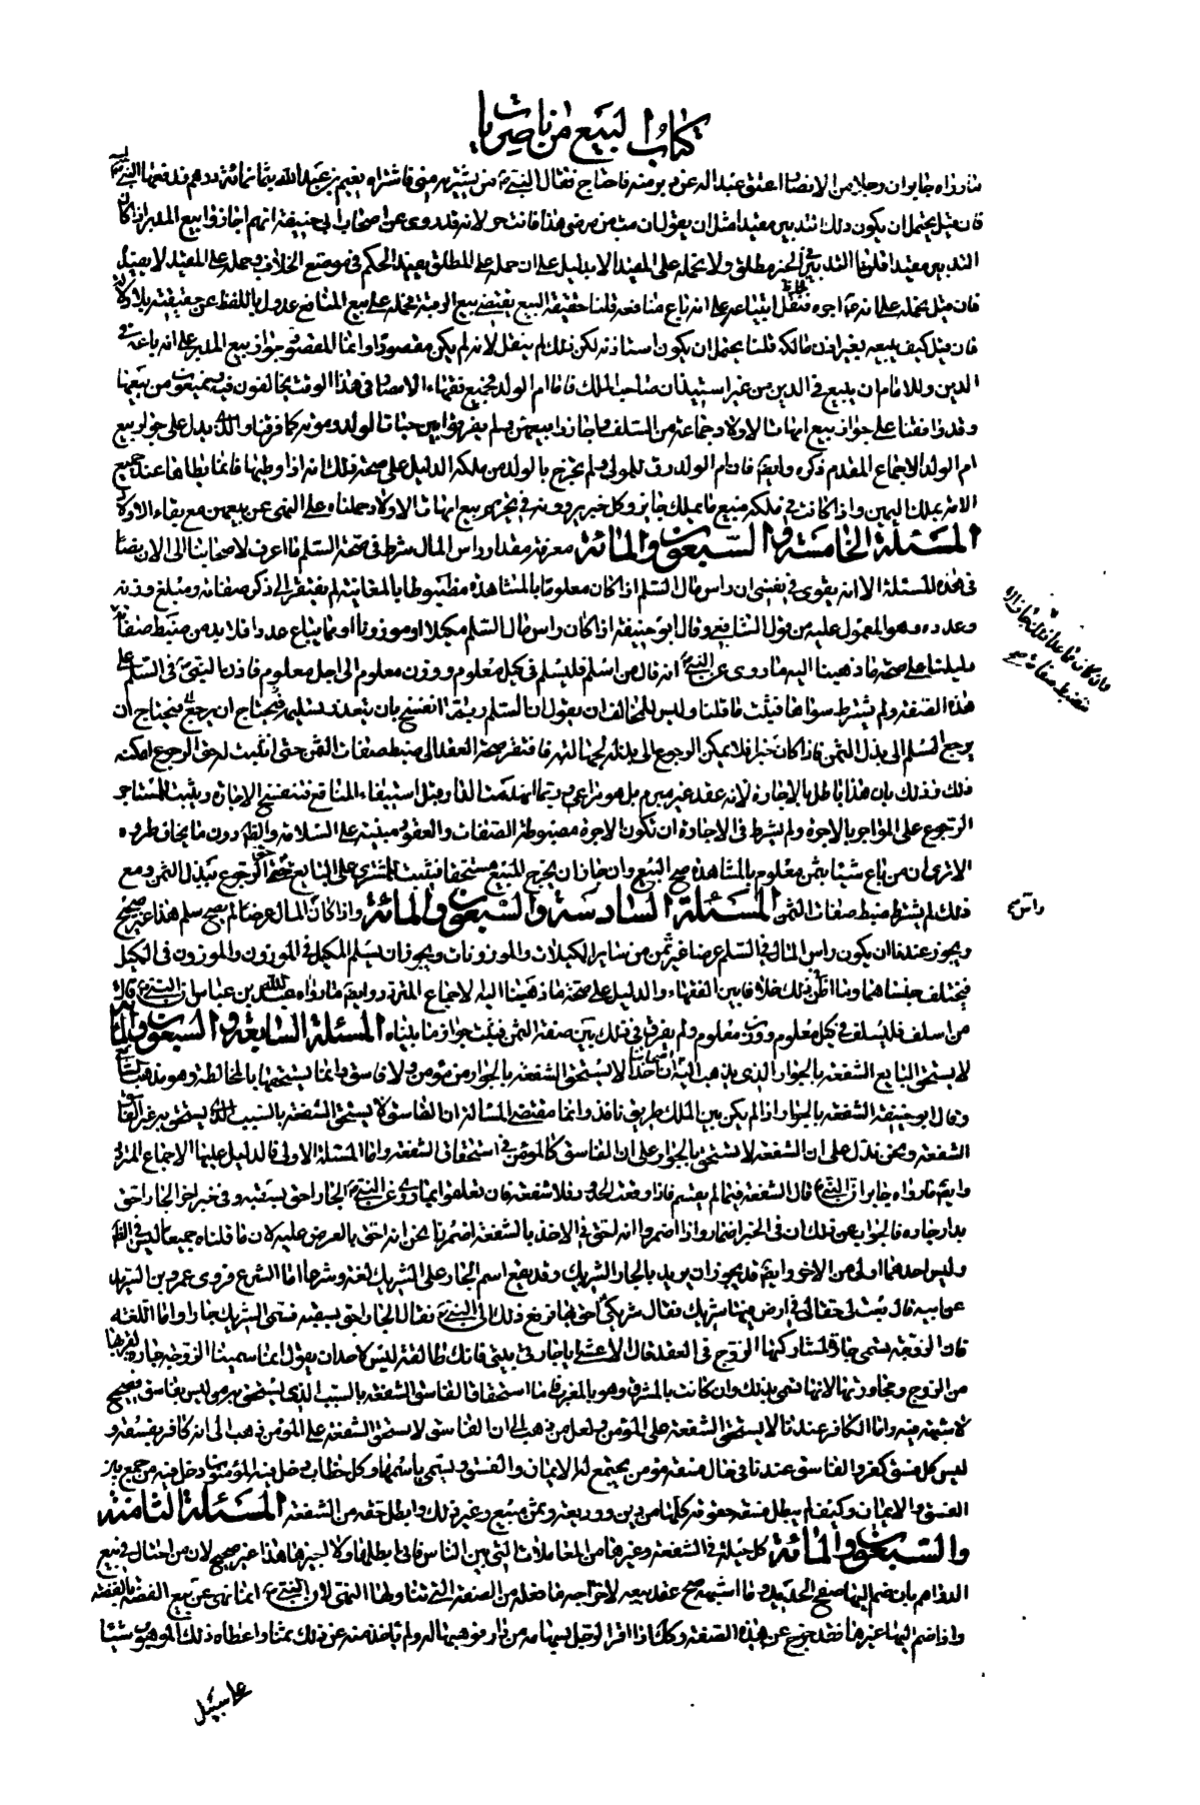 كتاب البيع من ناصريات
ما رواه جابر ان رجلا من الانصار اعتق عبدا له عن دبر منه فاحتاج فقال النبي ص من يشتريه مني فاشتراه نعيم بن عبد الله بثمانمائة درهم فدفعها اليه النبي ص
فان قيل يحتمل ان يكون ذلك التدبير مقيدا مثل ان يقول ان مت من مرضي هذا فانت حر لانه قد روى عن اصحاب ابي حنيفة انهم اجازوا بيع المدبر اذا كان
التدبير مقيدا قلنا التدبير في الخبر مطلق ولا نحمله على المقيد الا بدليل على ان حمله على المطلق يفيد الحكم في موضع الخلاف وحمله على المقيد لا يفيد
فان قيل نحمله على انه ع اجره فنقل انه باعه على انه باع منافعه قلنا حقيقة البيع يقتضي بيع الرقبة فحمله على بيع المنافع عدول باللفظ عن حقيقته بلا دلالة
فان قيل كيف يبيعه بغير اذن مالكه قلنا يحتمل ان يكون استاذنه لكن ذلك لم ينقل لانه لم يكن مقصودا وانما المقصود جواز بيع المدبر على انه باعه في
الدين وللامام ان يبيع في الدين من غير استيذان صاحب الملك فاما ام الولد فجميع فقهاء الامصار في هذا الوقت يخالفون فيه ويمنعون من بيعها
وقد وافقنا على جواز بيع امهات الاولاد جماعة من السلف واجازوا بيعهن ولم يفرقوا بين حيات الولد وموته كما فرقنا والذي يدل على جواز بيع
ام الولد الاجماع المقدم ذكره وايضا فان ام الولد رق للمولى ولم تخرج بالولد من ملكه الدليل على صحة ذلك انه اذا وطيها فانما يطاها عند جميع
الامة بملك اليمين واذا كانت في ملكه فبيع ما يملك جايز وكل خبر يروونه في تحريم بيع امهات الاولاد حملناه على النهي عن بيعهن مع بقاء الاولاد
المسئلة الخامسة والسبعون والمائة معرفة مقدار راس المال شرط في صحة السلم ما اعرف لاصحابنا الى الان نصا
في هذه المسئلة الا انه يقوى في نفسي ان راس مال السلم اذا كان معلوما بالمشاهدة مضبوطا بالمعاينة لم يفتقر الى ذكر صفاته ومبلغ وزنه
وعدده وهو المعول عليه من قول الشافعي وقال ابو حنيفة اذا كان راس مال السلم مكيلا او موزونا او مما يباع عددا فلا بد من ضبط صفاته
دليلنا على صحة ما ذهبنا اليه ما روى عن النبي ص انه قال من اسلم فليسلم في كيل معلوم ووزن معلوم الى اجل معلوم فاذن النبي ص في السلم على
هذه الصفة ولم يشترط سواها فيثبت ما قلنا وليس للمخالف ان يقول ان السلم ربما انفسخ بان يتعذر تسليمه فيحتاج ان
يرجع المسلم الى بذل الثمن فاذا كان جزافا لا يمكن الرجوع الى بدله لجهالته فافتقر صحة العقد الى ضبط صفات الثمن حتى ان ثبت له حق الرجوع امكنه
ذلك وذلك بان هذا باطل بالاجارة لانه عقد غير مبرم بل هو مراعى وربما انهدمت الدار قبل استيفاء المنافع فتنفسخ الاجارة ويثبت للمستاجر
الرجوع على المؤاجر بالاجرة ولم يشترط في الاجارة ان تكون الاجرة مضبوطة الصفات والعقود مبنية على السلامة والظاهر دون ما يخاف طروه
الا ترى ان من باع شيئا بثمن معلوم بالمشاهدة صح البيع وان جاز ان يخرج المبيع مستحقا فيثبت للمشتري على البايع حق الرجوع ببذل الثمن ومع
ذلك لم يشترط ضبط صفات الثمن المسئلة السادسة والسبعون والمائة واذا كان المال عرضا لم يصح سلم هذا غير صحيح
ويجوز عندنا ان يكون راس المال في السلم عرضا غير ثمن من ساير المكيلات والموزونات ويجوز ان يسلم المكيل في الموزون والموزون في المكيل
فيختلف جنساهما وما اظن في ذلك خلافا بين الفقهاء والدليل على صحة ما ذهبنا اليه الاجماع المتردد وايضا ما رواه عبد الله بن عباس ان النبي ص قال
من اسلف فليسلف في كيل معلوم ووزن معلوم ولم يفرق في ذلك بين صفة الثمن فيثبت جواز ما بيناه المسئلة السابعة والسبعون والمائة
لا يستحق البايع الشفعة بالجوار الذي يذهب اليه اصحابنا ان احدا لا يستحق الشفعة بالجوار من مؤمن ولا فاسق وانما يستحقها بالمخالطة وهو مذهب الشافعي
وقال ابو حنيفة الشفعة بالجوار اذا لم يكن بين الملك طريق نافذ وانما مقتضى المسالة ان الفاسق لا يستحق الشفعة بالسبب الذي يستحق به غير الفاسق
الشفعة ونحن ندل على ان الشفعة لا تستحق بالجوار وعلى ان الفاسق كالمؤمن في استحقاق الشفعة واما المسئلة الاولى فالدليل عليها الاجماع المتردد
وايضا ما رواه جابر ان النبي ص قال الشفعة فيما لم يقسم فاذا وقعت الحدود فلا شفعة فان تعلقوا بما روى عن النبي ص الجار احق بسقبه وفي خبر اخر الجار احق
بدار جاره فالجواب عن ذلك ان في الخبر اضمارا واذا اضمروا انه احق في الاخذ بالشفعة اضمرنا نحن انه احق بالعرض عليه لان ما قلناه جميعا ليس في الظاهر
وليس احدهما اولى من الاخر وايضا قد يجوز ان يريد بالجار الشريك وقد يقع اسم الجار على الشريك لغة وشرعا اما الشرع فروى عمرو بن الشريد
عن ابيه قال بعت حقا لي في ارض فيها شريك فقال شريكي انا احق بها فرفع ذلك الى النبي ص فقال الجار احق بسقبه فسمى الشريك جارا واما اللغة
فان الزوجة تسمى جارة لمشاركتها الزوج في العقد قال الاعشى ايا جارتي بيني فانك طالقة ليس لاحد ان يقول انما سمينا الزوجة جارة لقربها
من الزوج ومجاورتها لانها تسمى بذلك وان كانت بالمشرق وهو بالمغرب فاما استحقاق الفاسق الشفعة بالسبب الذي يستحق به من ليس بفاسق فصحيح
لا شبهة فيه واما الكافر عندنا لا يستحق الشفعة على المؤمن ولعل من ذهب الى ان الفاسق لا يستحق الشفعة على المؤمن ذهب الى انه كافر بفسقه و
ليس كل فسق كفرا والفاسق عندنا في حال فسقه مؤمن يجتمع له الايمان والفسق ويسمى باسمهما وكل خطاب دخل فيه المؤمنون دخل فيه من جمع بين
الفسق والايمان وكيف لم يبطل فسقه حقوقه كلها من دين ووديعة وثمن مبيع وغير ذلك وابطل حقه من الشفعة المسئلة الثامنة
والسبعون والمائة كل حيلة في الشفعة وغيرها من المعاملات التي بين الناس فاني ابطلها ولا اجيزها هذا غير صحيح لان من احتال في بيع
الدراهم بان ضم اليها صفح الحديد وما اشبهه صح عقد بيعه لاخراجه ما فعله من الصفة التي تناولها النهي لان النبي ص انما نهى عن بيع الفضة بالفضة
واذا ضم اليها غيرها فقد خرج عن هذه الصفة وكذلك اذا اقر لرجل بسهامه من دار فوهبها له ولم ياخذ منه عن ذلك ثمنا واعطاه ذلك الموهوب شيئا
على سبيل
وراس ص